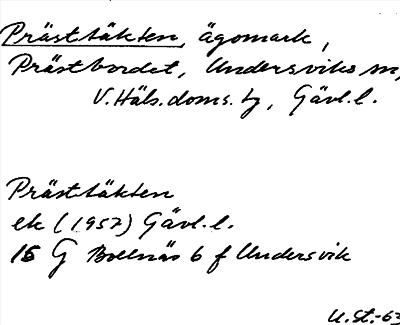 Prästtäkten, ägomark,
Prästbordet, Undersviks sn,
V. Häls. doms. tg, Gävl. l.
Prästtäkten
ek (1957) Gävl. l.
15 G Bollnäs 6 f Undersvik
U. St. -63